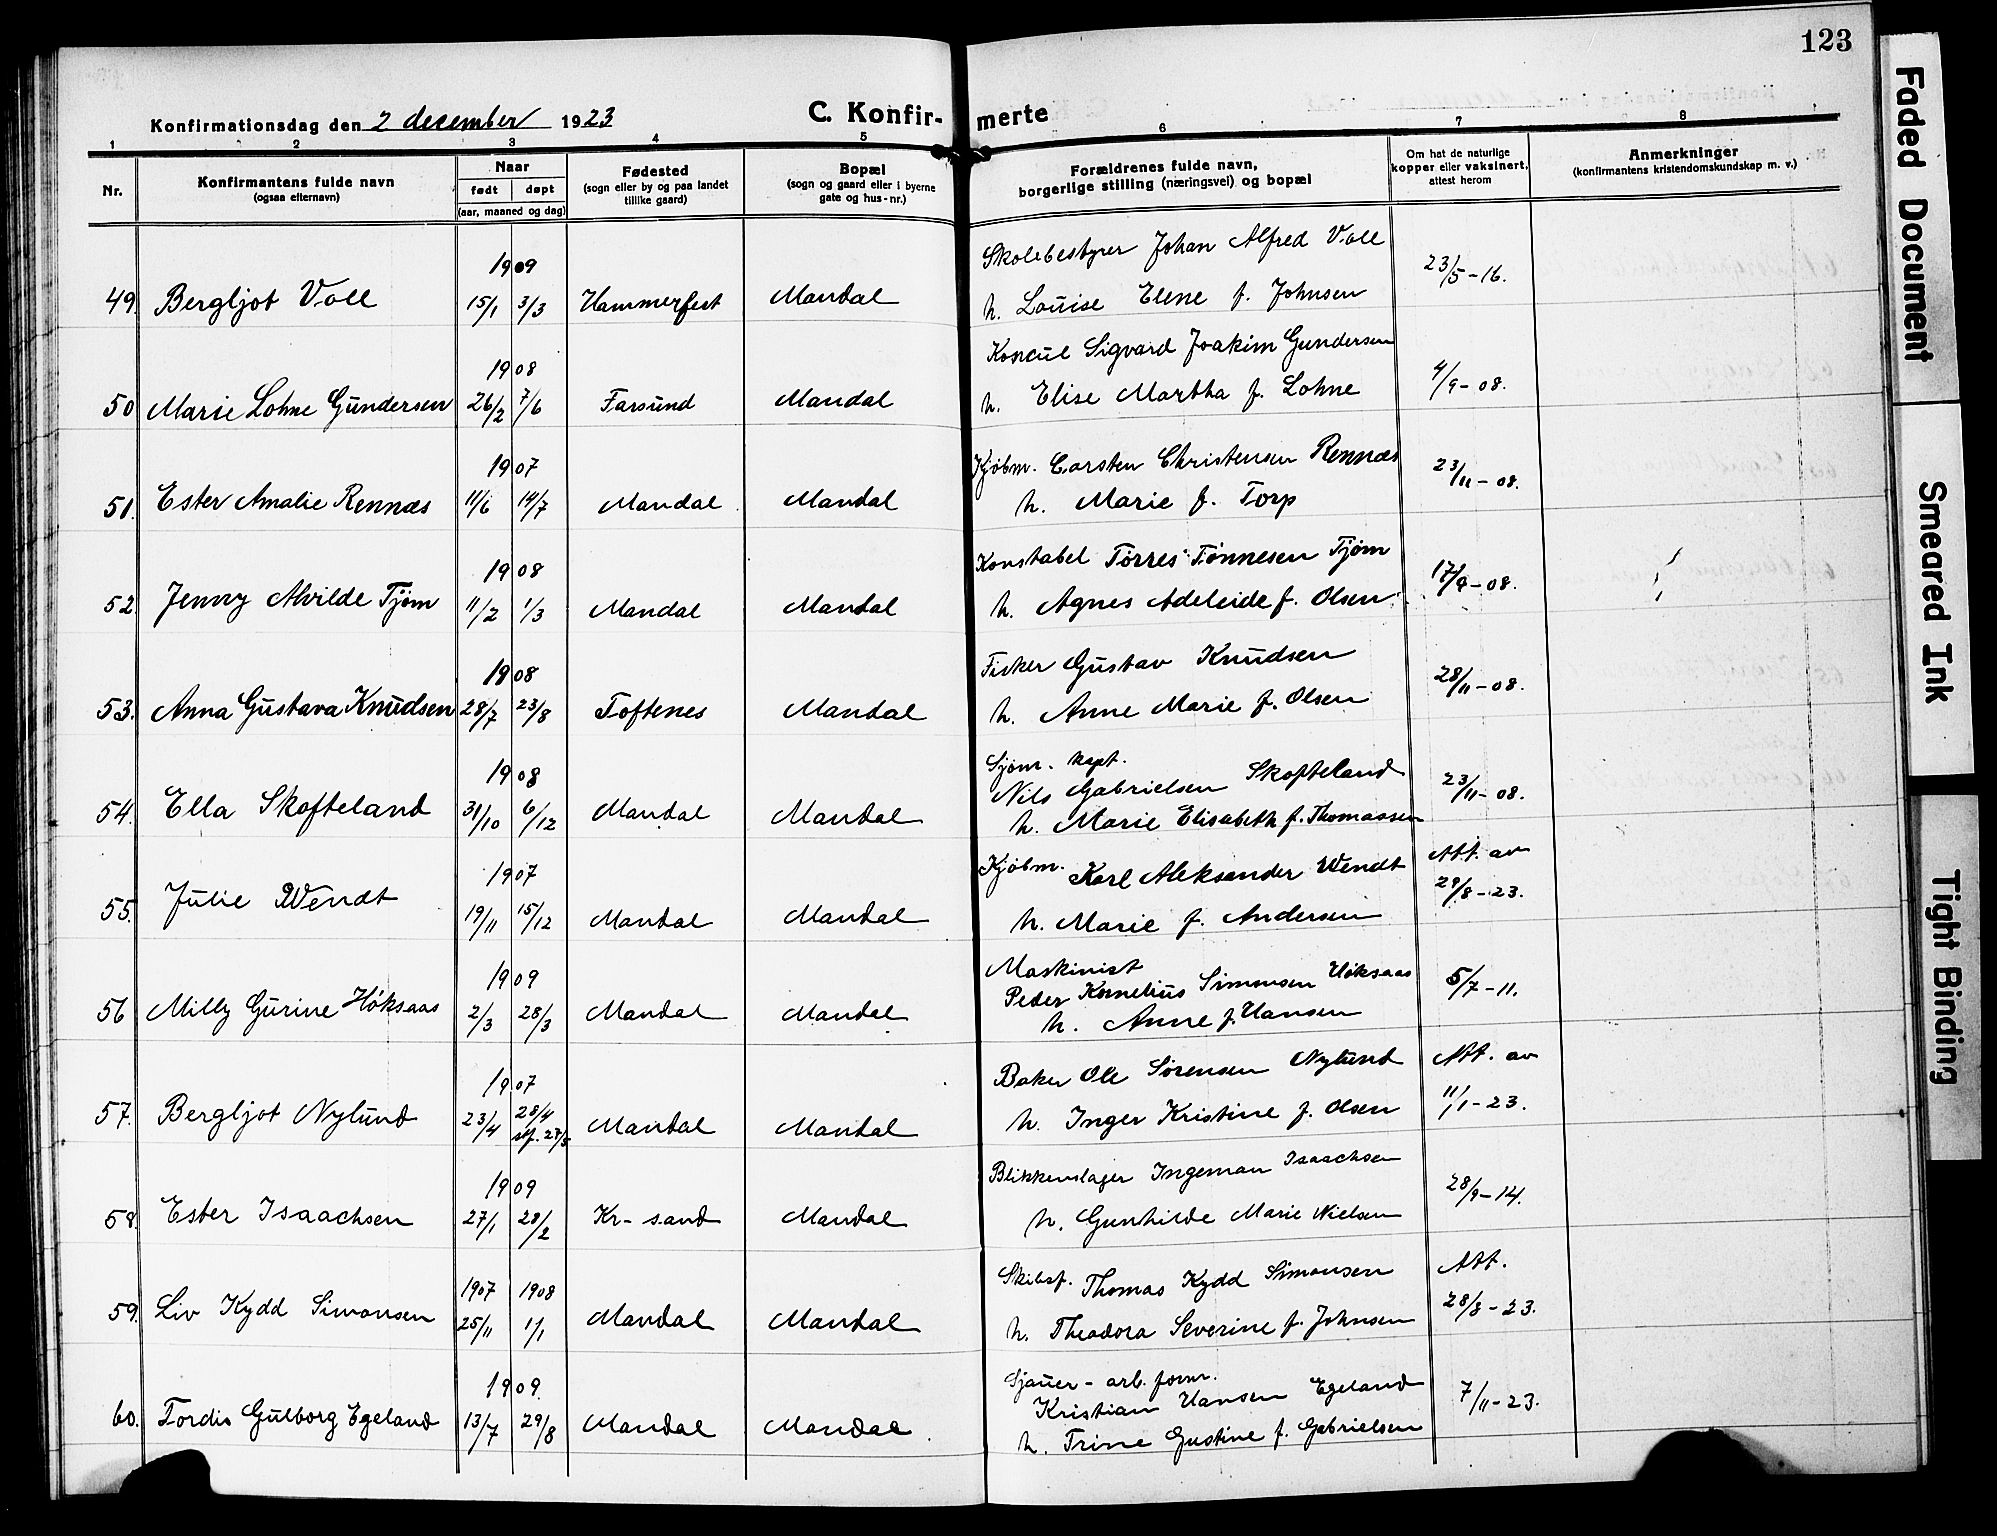 123
Konfirmationsdag den 2 december 1923
C. Konfir- merte
1 2 3 4 5 6 7 8
Nr.
Konfirmantens fulde navn
(ogsaa efternavn)
Naar
født døpt
(aar, maaned og dag)
Fødested
(sogn eller by og paa landet
tillike gaard)
Bopæl
(sogn og gaard eller i byerne
gate og hus-nr.)
Forældrenes fulde navn,
borgerlige stilling (næringsvei) og bopæl
Om hat de naturlige
kopper eller vaksinert,
attest herom
Anmerkninger
(konfirmantens kristendomskundskap m. v.)
1909 Skolebestyrer Johan Alfred Voll
49. Bergljot Voll 15/1 3/3 Hammerfest Mandal h. Louise Elene f. Johnsen 23/5-16.
1908 Konsul Sigvard Joakim Gundersen
50 Marie Lohne Gundersen 26/2 7/6 Farsund Mandal h. Elise Martha f. Lohne 4/9-08.
1907 Kjøbm. Carsten Christensen Rennæs
51. Ester Amalie Rennæs 11/6 14/7 Mandal Mandal h. Marie f. Torp 23/11-08.
1908 Konstabel Tørres Tønnesen Tjøm
52 Jenny Alvilde Tjøm 11/2 1/3 Mandal Mandal h. Agnes Adeleide f. Olsen 17/9-08.
1908 Fisker Gustav Knudsen
53. Anna Gustava Knudsen 28/7 23/8 Toftenes Mandal h. Anne Marie f. Olsen 28/11-08.
1908 Sjøm. kapt.
Nils Gabrielsen Skofteland
54. Ella Skofteland 31/10 6/12 Mandal Mandal h. Marie Elisabeth f. Thomassen 23/11-08.
1907 Kjøbm. Karl Aleksander Wendt Att. av
55. Julie Wendt 19/11 15/12 Mandal Mandal h. Marie f. Andersen 29/8-23.
1909 Maskinist
Peder Kornelius Simonsen Høksaas
56 Milly Gurine Høksaas 2/3 28/3 Mandal Mandal h. Anne f. Hansen 5/7-11.
1907 Baker Ole Sørensen Nylund Att. av
57. Bergljot Nylund 23/4 28/4 Mandal Mandal h. Inger Kristine f. Olsen 11/1-23.
1909 Blikkenslager Ingeman Isaachsen
58. Ester Isaachsen 27/1 28/2 Kr-sand Mandal h. Gunhilde Marie Nielsen 28/9-14.
1907 1908 Skibsf. Thomas Kydd Simonsen Att.
59. Liv Kydd Simonsen 25/11 1/1 Mandal Mandal h. Theodora Severine f. Johnsen 28/8-23.
1909. Sjauer-arb. form.
Kristian Hansen Egeland
60. Tordis Gulborg Egeland 13/7 29/8 Mandal Mandal h. Trine Gustine f. Gabrielsen 7/11-23.
Faded Document
Smeared Ink
Tight Binding